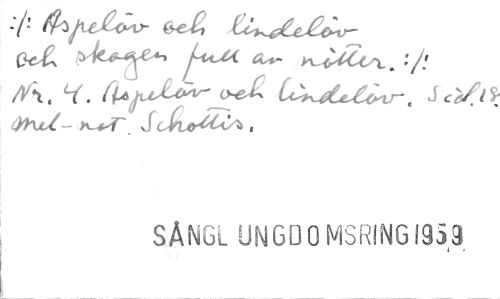 :/: Aspelöv och lindelöv
och skogen full av nötter. :/:
Nr. 4. Aspelöv och lindelöv. Sid. 18.
Mel-not. Schottis.
SÅNGL UNGDOMSRING 1959